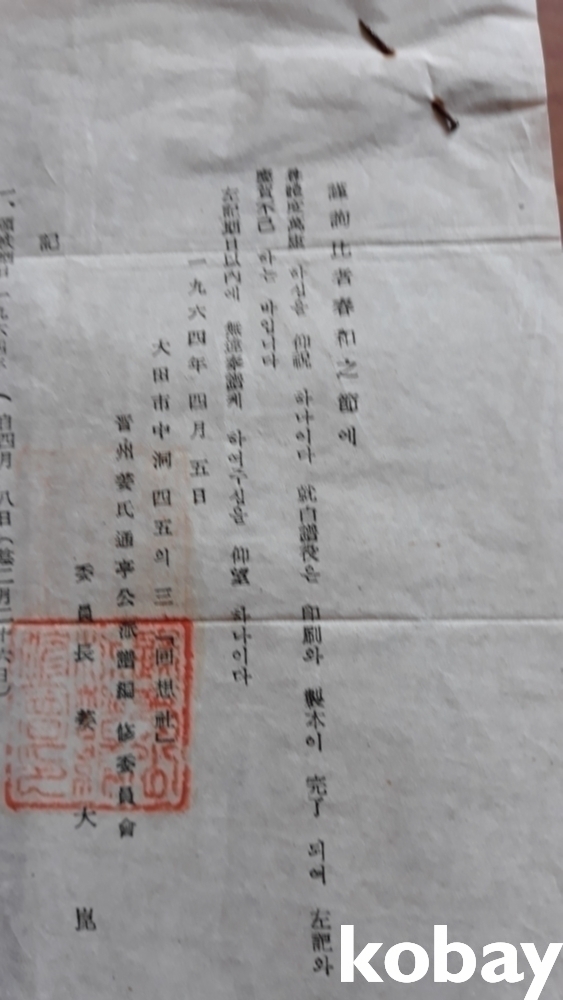 謹詢比者春和之節에
尊體度萬康 하심을 仰祝 하나이다 就白譜役은 印刷와 製本이 完了 되여 左記와
慶賀不已 하는 바입니다
左記期日以內에 無違奉讀케 하여주심을 仰望 하나이다
一九六四年 四月 五日
大田市中洞 四五의 三 「回想社」
晋州姜氏通亭公派譜編修委員會
委員長 姜大崑
記
一、 一九六四年 (自四月 八日(陰二月二十六日)
kobay